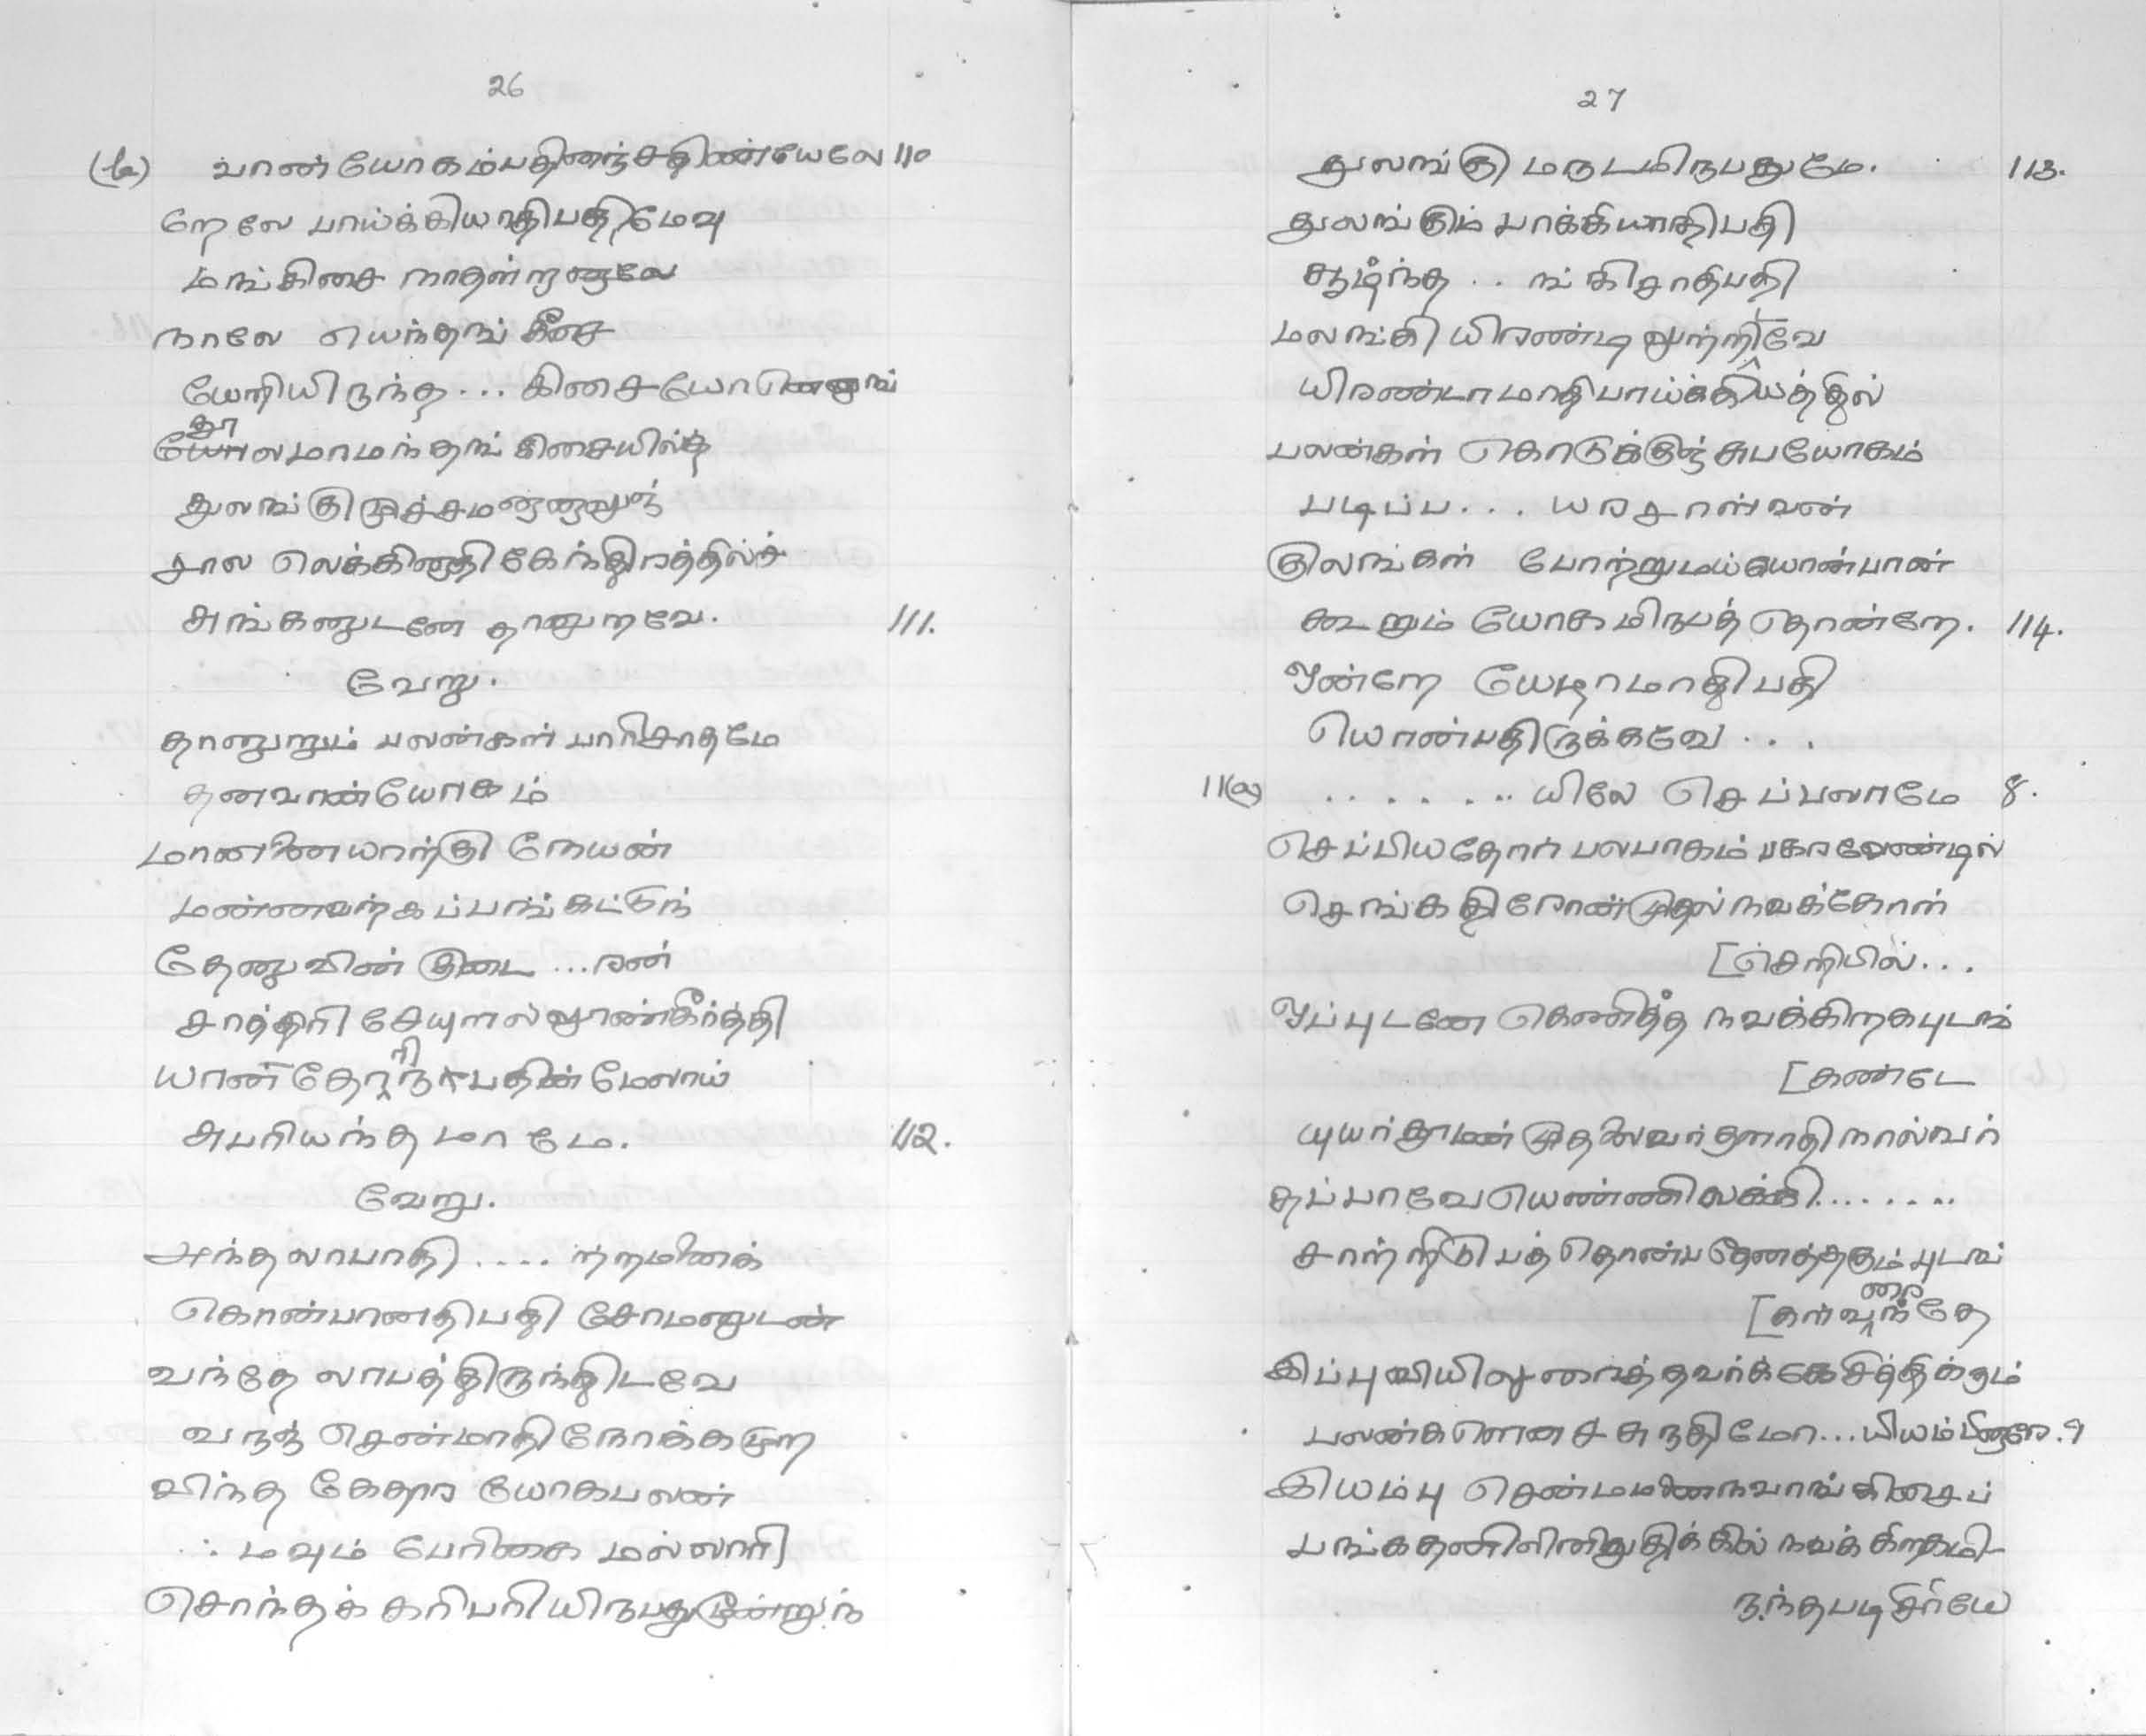 26
(b) வான்யோகம்பதினைந்சதிண்யேலே 110
றேலே பாய்க்கியாதிபதிமேவு
மங்கிசை நாதன்றனுலே
நாலே யெந்தங் கீசை
யேறியிருந்த... கிசையோனெனுங்
கோலமாமந்தங் கிசையில்த்
துலங்குமுச்சமனுனுமுந்
சால லெக்கினாதி கேந்திரத்தில்ச்
சுங்கனுடனே தானுறவே. 111.
வேறு.
தானுறும் பலன்கள் பாரிசாதமே
தனவான்யோகம்
மானனையார்கு நேயன்
மண்ணவர்கப்பங்கட்டுந்
தேனுவின் குடை ...ரன்
சாத்தூரி சேயுளல்லான்கீர்த்தி
யான்தேறிநாபதின்மேலாய்
சுபரியந்த மாமே. 112.
வேறு.
அந்தலாபாதி .... ந்றமினைக்
கொண்பானதிபதி சோமனுடன்
வந்தே லாபத்திருந்திடவே
வருஞ் சென்மாதிநோக்கமுற
விந்த கேதார யோகபலன்
∴ மவும் பேரிகை மல்லாரி
சொந்தக் கரிபரியிருபதுமூன்றுந்
27
துலங்கு மருடமிருபதுமே. 113.
துலங்கும் பாக்கியாதிபதி
சூழ்ந்த .. ங்கிசாதிபதி
மலங்கி யிரண்டி லுற்றிவே
யிரண்டாமாதிபாய்க்கியத்தில்
பலன்கள் கொடுக்குஞ் சுபயோகம்
படிப்ப... யரசாள்வன்
குலங்கள் போற்றுமய்யொன்பான்
கூறும் யோகமிருபத் தொன்றே. 114.
ஒன்றே யேழாமாதிபதி
யொன்பதிருக்கவே ...
11(a) ........ யிலே செப்பலாமே 8.
செப்பியதோர் பலபாகம் பகரவேண்டில்
செங்கதிரோன்முதல்நவக்கோள்
[செறியில்...
ஒப்புடனே கெணித்த நவக்கிறகபுடங்
[கண்டே
யுயர்தூமன்முதலைவர்தூமாதிநால்வர்
தப்பாவேயெண்ணிலக்கி........
சாற்றிடு பத்தொன்பதேனத்தகும்புடங்
[கள்வரைந்தே
இப்புவியிலுரைத்தவர்க்கேசித்திக்கும்
பலன்களெனச்சுருதிமோ...யியம்பினாரே. 9
இயம்பு சென்மமனைநவாங்கிசைப்
பங்கதனிலினிலுதிக்கில் நவக்கிறகமி-
ருந்தபடி சரியே